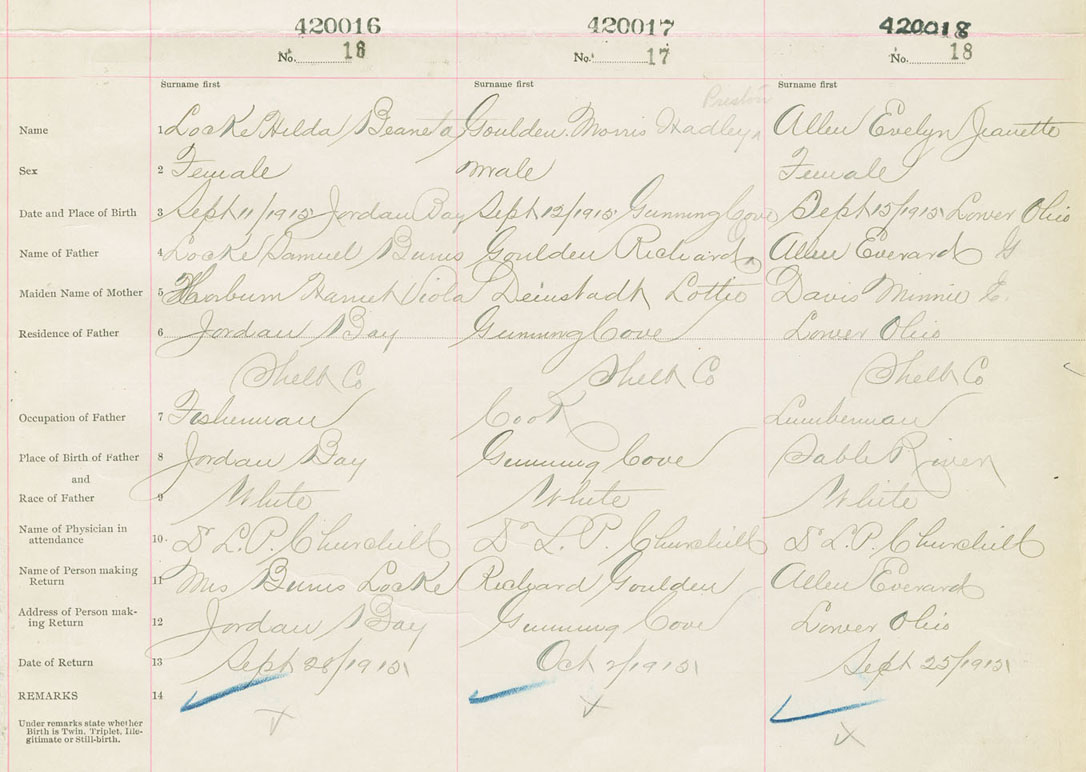 420016 420017 420018
No. 16 No. 17 No. 18
Surname first Surname first Surname first
Preston
Name 1 Locke Hilda Goulden Morris Hadley Allen Evelyn Jeanette
Sex 2 Female Male Female
Date and Place of Birth 3 Sept 11/1915 Jordan Bay Sept 12/1915 Gunning Cove Sept 15/1915 Lower Ohio
Name of Father 4 Locke Samuel Burns Goulden Richard Allen Everard G
Maiden Name of Mother 5 Thorburn Harriet Viola Deinstadt Lottie Davis Minnie E.
Residence of Father 6 Jordan Bay Gunning Cove Lower Ohio
Shelb Co Shelb Co Shelb Co
Occupation of Father 7 Fisherman Cook Lumberman
Place of Birth of Father 8 Jordan Bay Gunning Cove Sable River
and
Race of Father 9 White White White
Name of Physician in
attendance 10 Dr L.P. Churchill Dr L.P. Churchill Dr L.P. Churchill
Name of Person making
Return 11 Mrs Burns Locke Richard Goulden Allen Everard
Address of Person mak-
ing Return 12 Jordan Bay Gunning Cove Lower Ohio
Date of Return 13 Sept 28/1915 Oct 2/1915 Sept 25/1915
REMARKS 14
Under remarks state whether
Birth is Twin, Triplet, Ille-
gitimate or Still-birth.